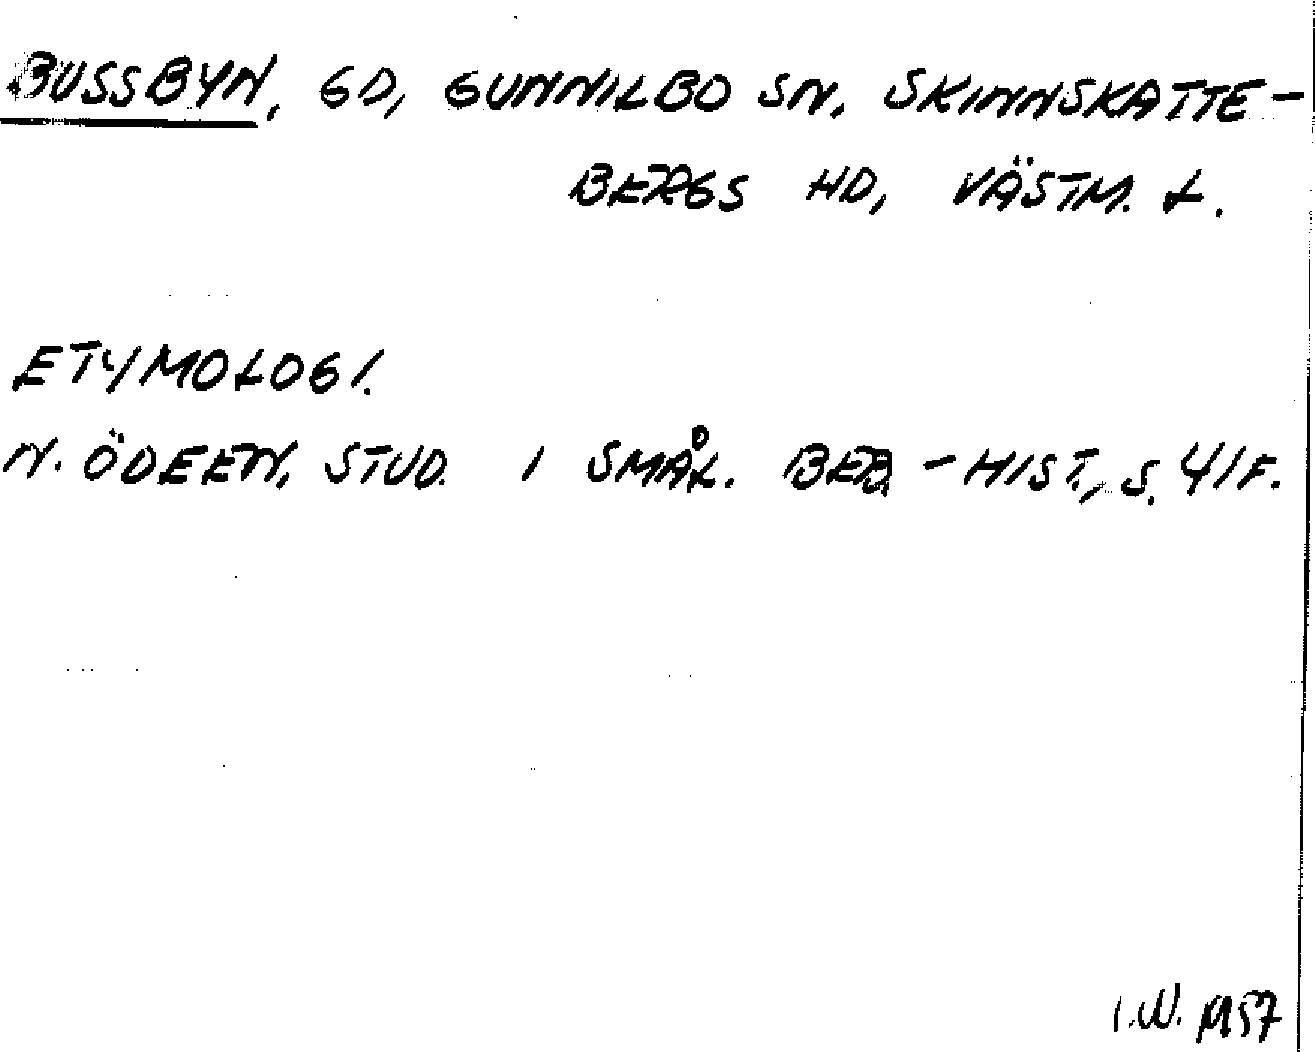 BUSSBYN, GD, GUNNILBO SN, SKINNSKATTE-
BERGS HD, VÄSTM. L.
ETYMOLOGI.
N. ÖDEEN, STUD. I SMÅL. BEB-HIST., S. 41F.
I.W. 1957